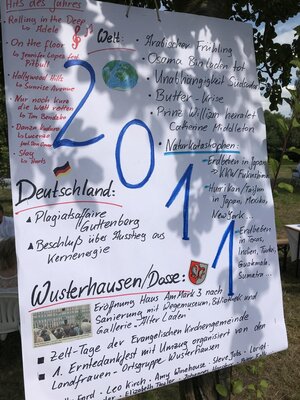 Hits des Jahres
Rolling in the Deep
↳ Adele
On the floor
↳ Jennifer Lopez feat
Pitbull
Hollywood Hills
↳ Sunrise Avenue
Nur noch kurz
die Welt retten
↳ Tim Bendzko
Danza Kuduro
↳ Lucenzo
feat. Don Omar
Stay
↳ Hurts
Welt:
• Arabischer Frühling
• Osama Bin Laden tot
• Unabhängigkeit Südsudan
• Butter-Krise
• Prinz William heiratet
Catherine Middleton
• Naturkatastrophen:
→ Erdbeben in Japan
↳ KKW Fukushima
→ Hurrikan/Taifun
in Japan, Mexiko,
New York...
→ Erdbeben
in Texas,
Indien, Türkei,
Guatemala,
Sumatra ...
2011
Deutschland:
▲ Plagiatsaffäre
Guttenberg
▲ Beschluß über Ausstieg aus
Kernenergie
Wusterhausen/Dosse:
Eröffnung Haus Am Markt 3 nach
Sanierung mit Wegemuseum, Bibliothek und
Gallerie "Alter Laden"
■ Zelt-Tage der Evangelischen Kirchengemeinde
■ 1. Erntedankfest mit Umzug organisiert von den
Landfrauen - Ortsgruppe Wusterhausen
Ford - Leo Kirch - Amy Winehouse - Steve Jobs - Loriot -
Elizabeth Taylor